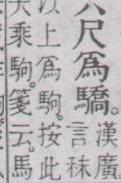 六尺爲驕。
漢廣
言秣
以上爲駒。按此
大乘駒。箋云。馬